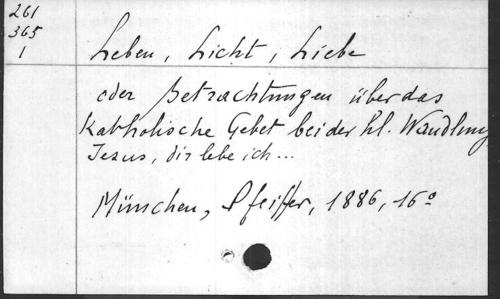 261
365
1
Leben, Licht, Liebe
oder Betrachtungen über das
Katholische Gebet bei der hl. Wandlung
Jesus, dir lebe ich...
München, Pfeiffer, 1886, 16°